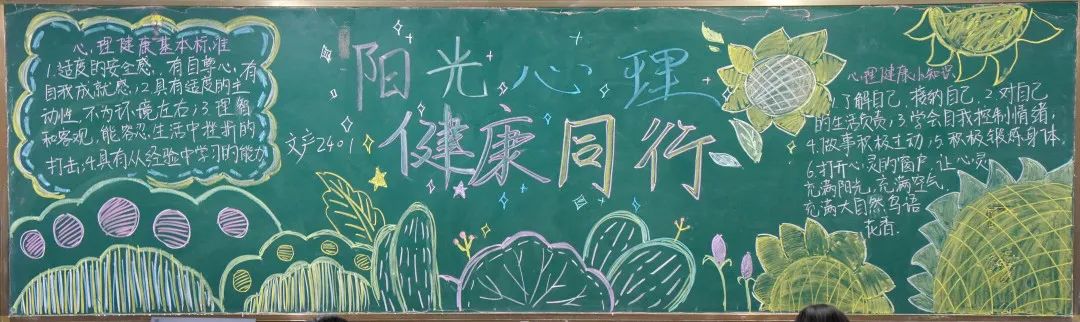 心理健康基本标准
1.适度的安全感，有自尊心，有
自我成就感；2.具有适度的主
动性，不为环境左右；3.理解
和客观，能容忍生活中挫折的
打击；4.具有从经验中学习的能力
文产2401
阳光心理
健康同行
心理健康小知识
1.了解自己，接纳自己. 2.对自己
的生活负责；3.学会自我控制情绪；
4.做事积极主动；5.积极锻炼身体.
6.打开心灵的窗户，让心灵
充满阳光，充满空气，
充满大自然鸟语
花香.